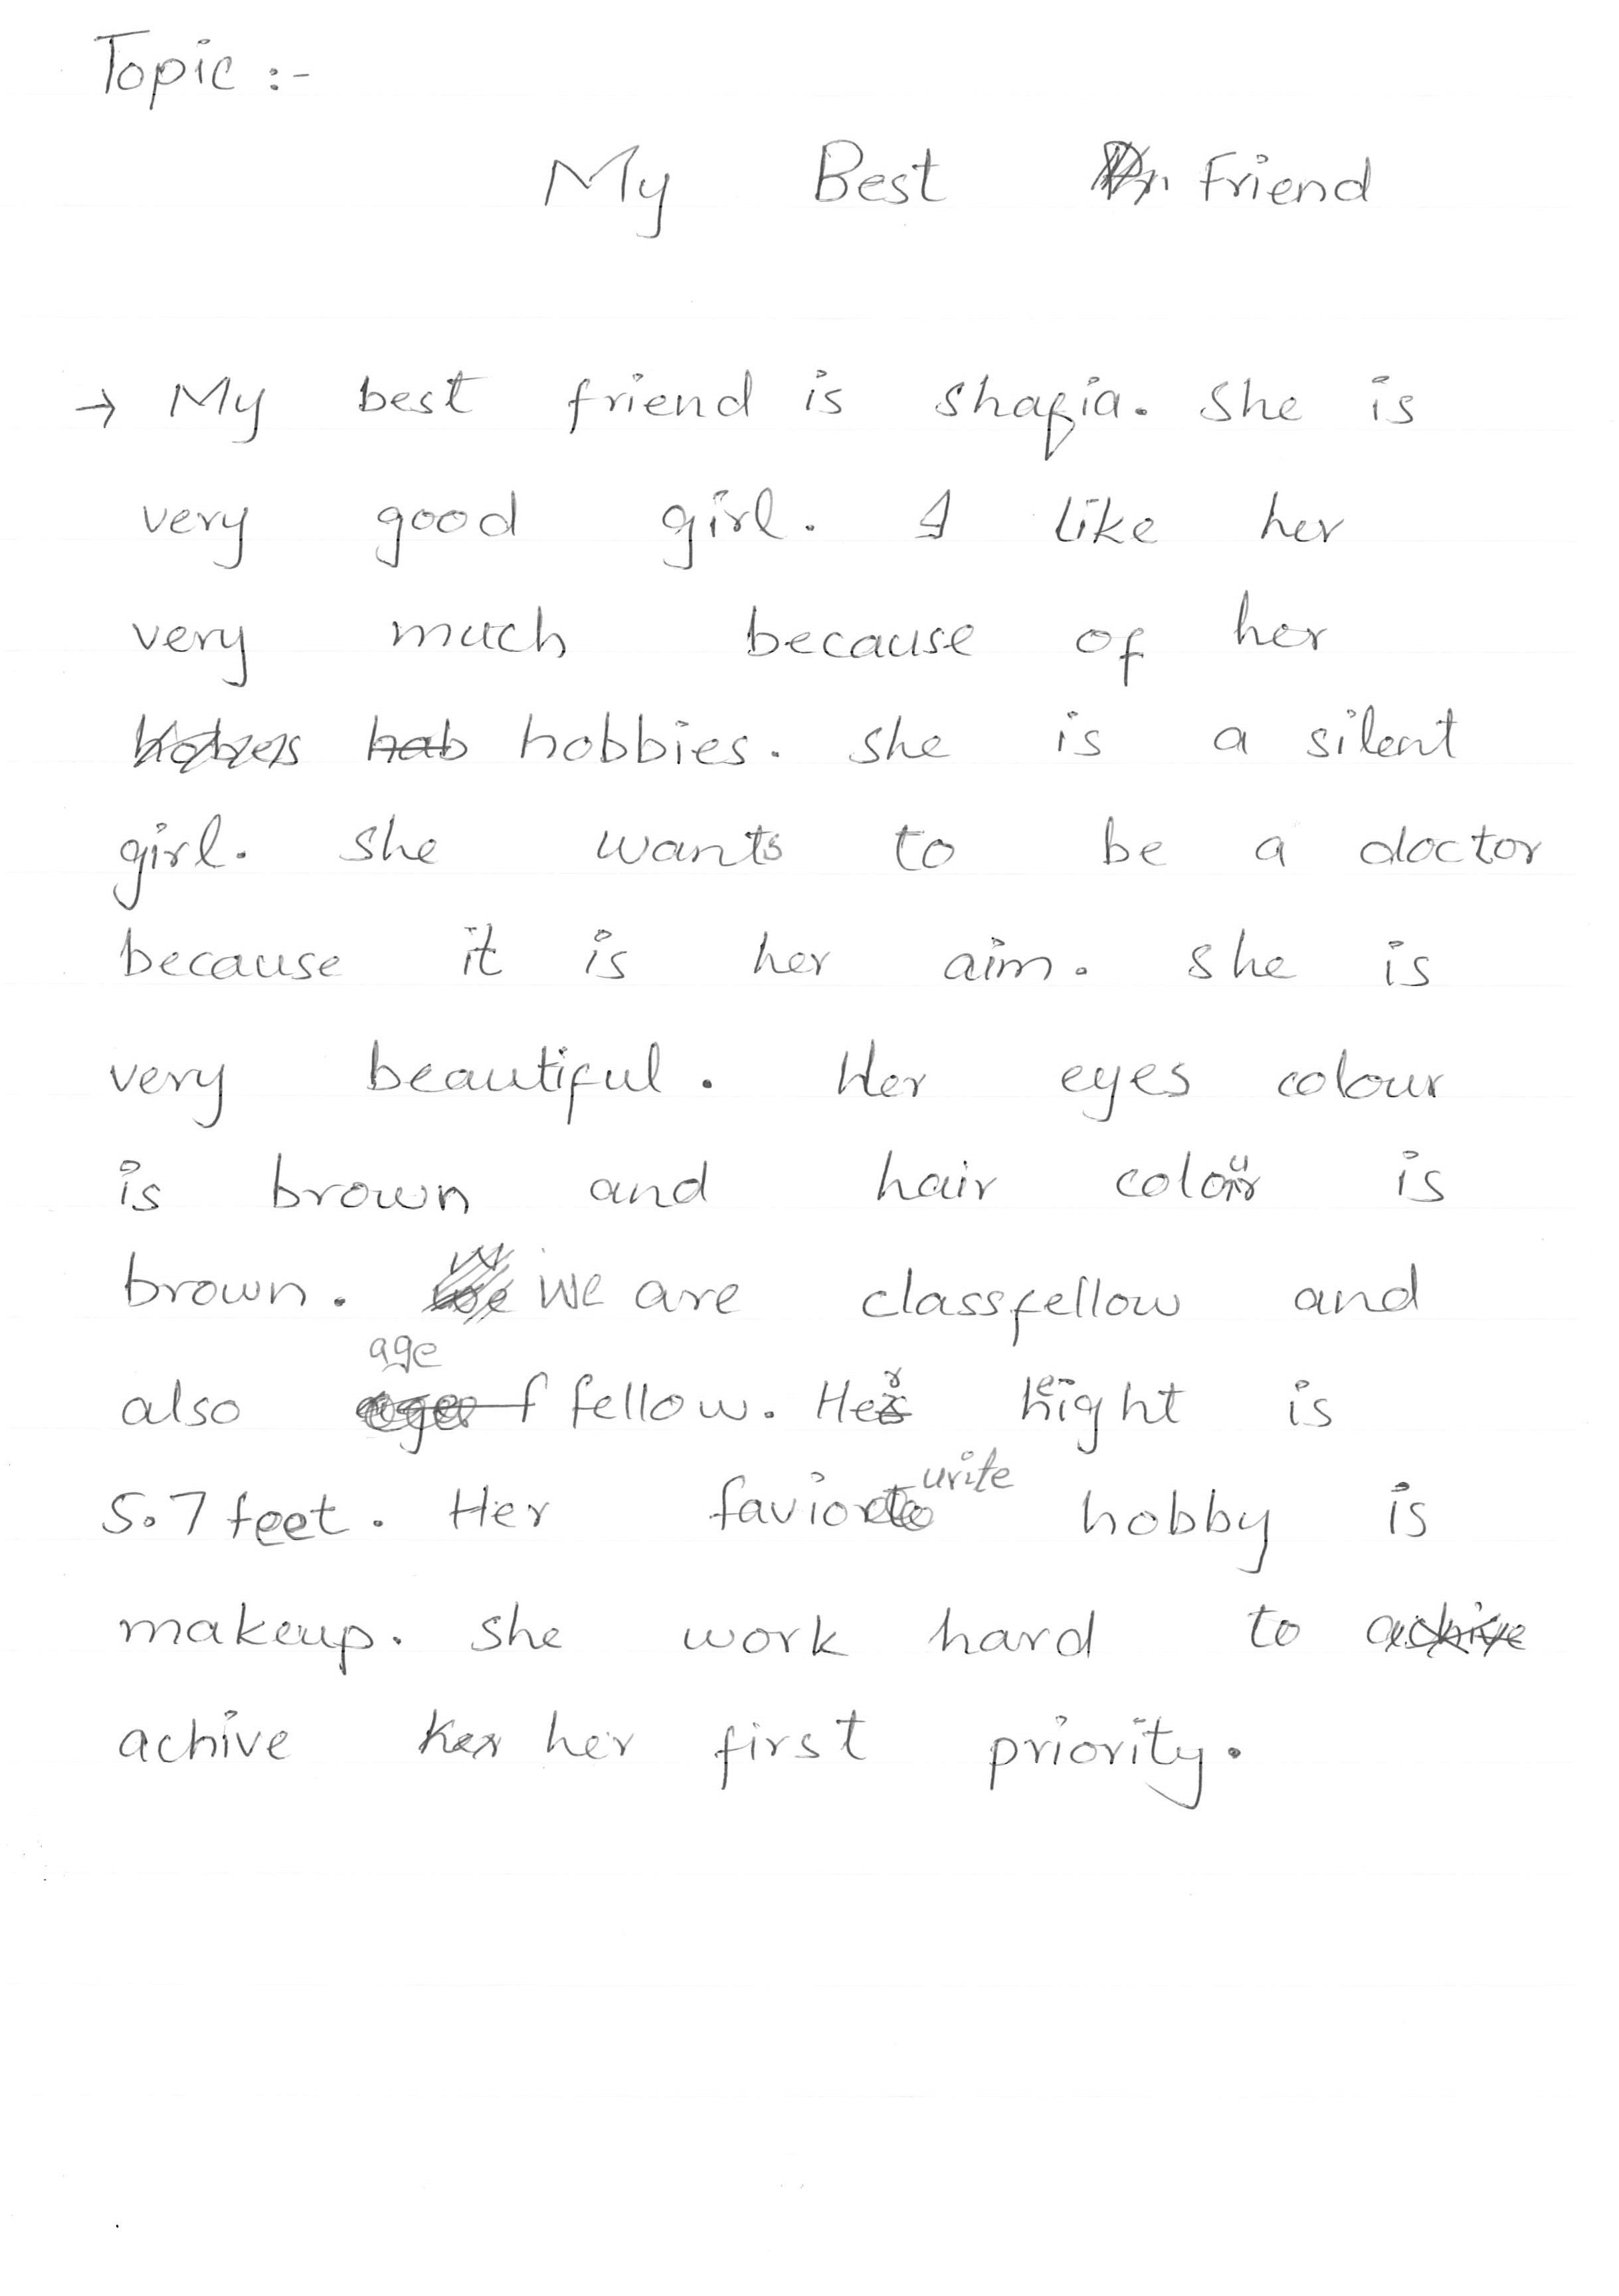 Topic :-
My Best Friend
→ My best friend is shafia. She is
very good girl. I like her
very much because of her
hobbies. she is a silent
girl. she wants to be a doctor
because it is her aim. she is
very beautiful. Her eyes colour
is brown and hair colour is
brown. We are classfellow and
also age fellow. Her height is
5.7 feet. Her faviourite hobby is
makeup. she work hard to
achive her first priority.